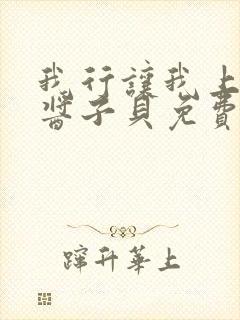 我行让我上
酱子贝免费
蹿升华上